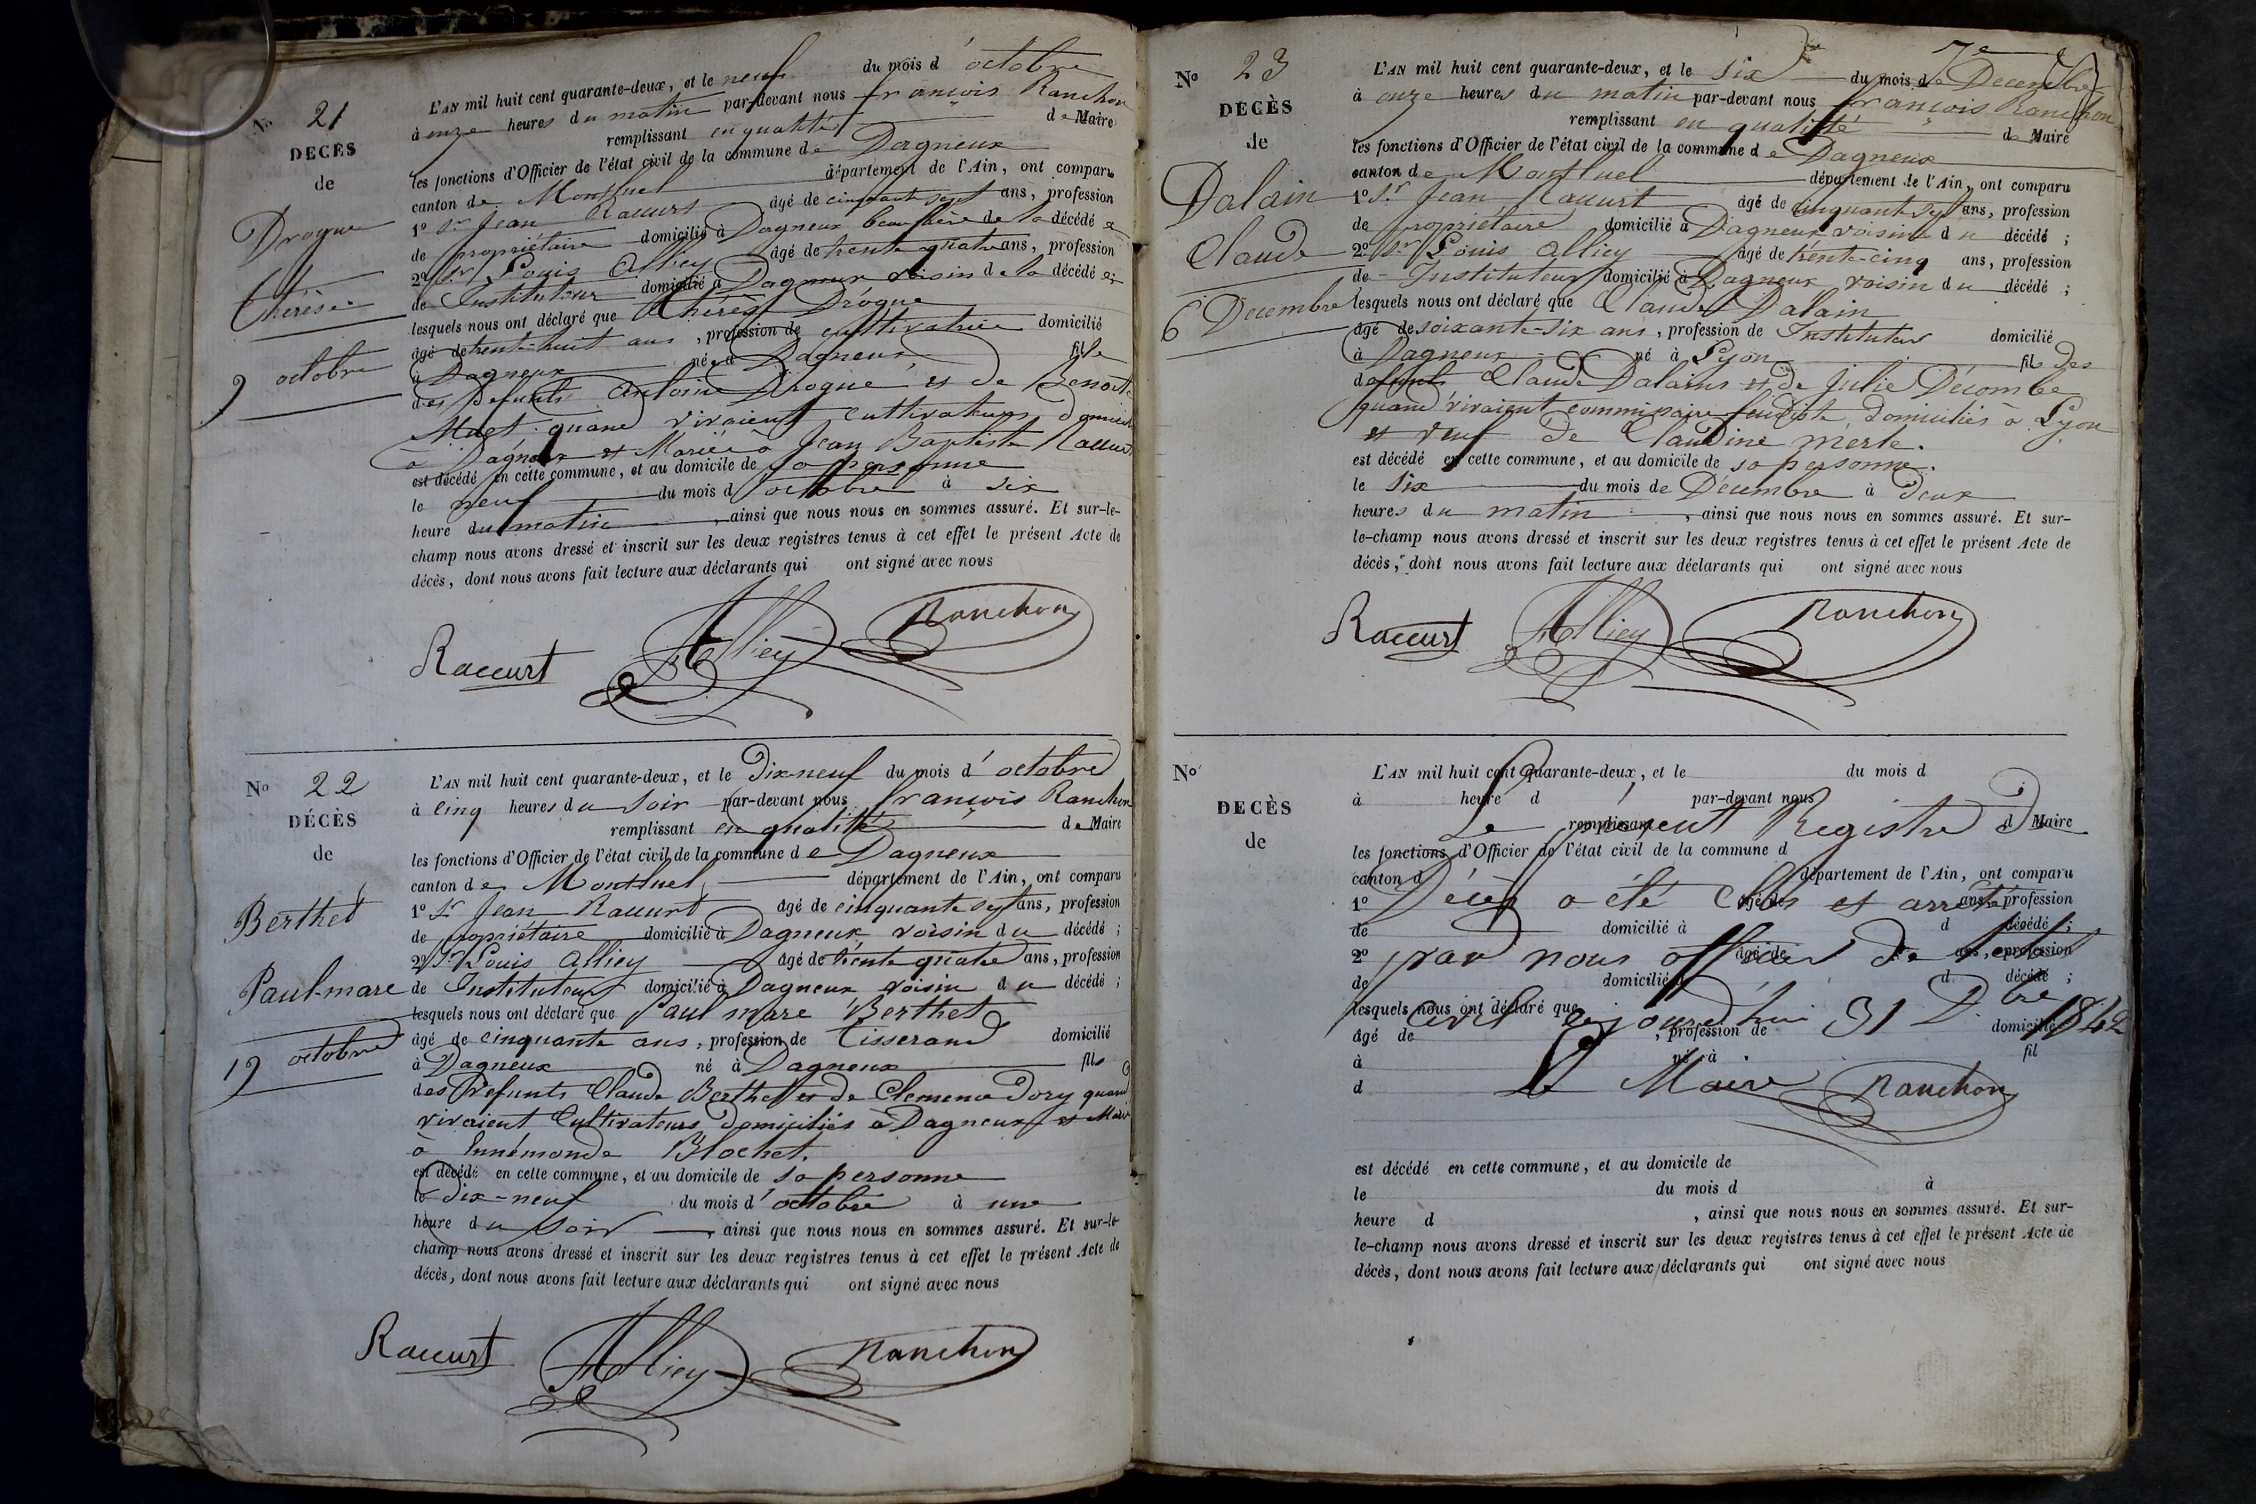 No 21
DECÈS
de
Drogue
Thérèse
9 octobre
L'AN mil huit cent quarante-deux, et le neuf du mois d'octobre
à onze heures du matin par-devant nous françois Ranchon
remplissant en qualité de Maire
les fonctions d'Officier de l'état civil de la commune de Dagneux
canton de Montluel département de l'Ain, ont comparu
1º Sr Jean Raccurt âgé de cinquante sept ans, profession
de propriétaire domicilié à Dagneux beau frère de la décédée
2º Sr Louis Alliey âgé de trente quatre ans, profession
de Instituteur domicilié à Dagneux voisin de la décédée
lesquels nous ont déclaré que Thérèse Drogue
âgé de trente-huit ans, profession de cultivatrice domicilié
à Dagneux née à Dagneux fille
des Defunts Antoine Drogue et de Benoite
quand vivaient cultivateurs
à Dagneux et Mariée à Jean Baptiste Raccurt
est décédé en cette commune, et au domicile de sa personne
le neuf du mois d'octobre à six
heure du matin, ainsi que nous nous en sommes assuré. Et sur-le-
champ nous avons dressé et inscrit sur les deux registres tenus à cet effet le présent Acte de
décès, dont nous avons fait lecture aux déclarants qui ont signé avec nous
Raccurt Alliey Ranchon
No 22
DÉCÈS
de
Berthet
Paul-marc
19 octobre
L'AN mil huit cent quarante-deux, et le Dix-neuf du mois d'octobre
à cinq heures du soir par-devant nous françois Ranchon
remplissant en qualité de Maire
les fonctions d'Officier de l'état civil de la commune de Dagneux
canton de Montluel département de l'Ain, ont comparu
1º Sr Jean Raccurt âgé de cinquante sept ans, profession
de propriétaire domicilié à Dagneux voisin du décédé ;
2º Sr Louis Alliey âgé de trente quatre ans, profession
de Instituteur domicilié à Dagneux voisin du décédé ;
lesquels nous ont déclaré que Paul marc Berthet
âgé de cinquante ans, profession de Tisserand domicilié
à Dagneux né à Dagneux fils
des Defunts Claude Berthet et de Clemence Dory quand
vivaient Cultivateurs domiciliés à Dagneux et Marié
à Ennémonde Blochet.
est décédé en cette commune, et au domicile de sa personne
le dix-neuf du mois d'octobre à une
heure du soir, ainsi que nous nous en sommes assuré. Et sur-le-
champ nous avons dressé et inscrit sur les deux registres tenus à cet effet le présent Acte de
décès, dont nous avons fait lecture aux déclarants qui ont signé avec nous
Raccurt Alliey Ranchon
No 23
DECÈS
de
Dalain
Claude
6 Decembre
L'AN mil huit cent quarante-deux, et le Six du mois de Decembre
à onze heures du matin par-devant nous françois Ranchon
remplissant en qualité de Maire
les fonctions d'Officier de l'état civil de la commune de Dagneux
canton de Montluel département de l'Ain, ont comparu
1º Sr Jean Raccurt âgé de cinquante sept ans, profession
de propriétaire domicilié à Dagneux voisin du décédé ;
2º Sr Louis Alliey âgé de trente-cinq ans, profession
de Instituteur domicilié à Dagneux voisin du décédé ;
lesquels nous ont déclaré que Claude Dalain
âgé de soixante-six ans, profession de Instituteur domicilié
à Dagneux né à Lyon fils des
defunts Claude Dalains et de Julie Décombe
quand vivaient commissaire feudiste domiciliés à Lyon
et veuf de Claudine merle.
est décédé en cette commune, et au domicile de sa personne.
le Six du mois de Décembre à deux
heures du matin, ainsi que nous nous en sommes assuré. Et sur-
le-champ nous avons dressé et inscrit sur les deux registres tenus à cet effet le présent Acte de
décès, dont nous avons fait lecture aux déclarants qui ont signé avec nous
Raccurt Alliey Ranchon
No
DECÈS
de
L'AN mil huit cent quarante-deux, et le du mois d
à heure d par-devant nous
remplissant d Maire
Le présent Registre de
les fonctions d'Officier de l'état civil de la commune d
canton d département de l'Ain, ont comparu
Décès a été Clos et arrêté
1º âgé de ans, profession
de domicilié à d décédé ;
par nous officier de l'état
2º âgé de ans, profession
de domicilié à d décédé ;
lesquels nous ont déclaré que
civil ce jourd'hui 31 Dbre 1842
âgé de , profession de domicilié
à né à fil
d
Le Maire Ranchon
est décédé en cette commune, et au domicile de
le du mois d à
heure d , ainsi que nous nous en sommes assuré. Et sur-
le-champ nous avons dressé et inscrit sur les deux registres tenus à cet effet le présent Acte de
décès, dont nous avons fait lecture aux déclarants qui ont signé avec nous